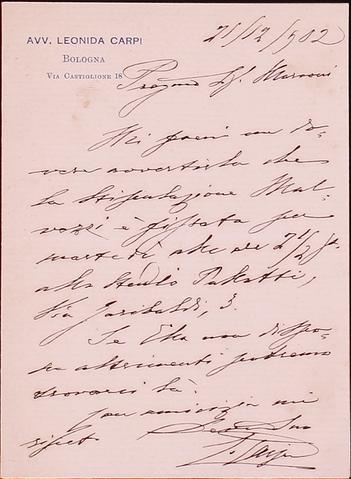 AVV. LEONIDA CARPI
BOLOGNA
VIA CASTIGLIONE 18
21/12/902
Sig. Marconi
Mi faccio un do-
vere avvertirla che
la stipulazione Mal-
vezzi è fissata per
martedì alle ore 2
allo studio
Via Garibaldi, 3.
Se Ella non dispo-
ne altrimenti potremo
trovarci là.
Con amicizia mi
Suo
L. Carpi